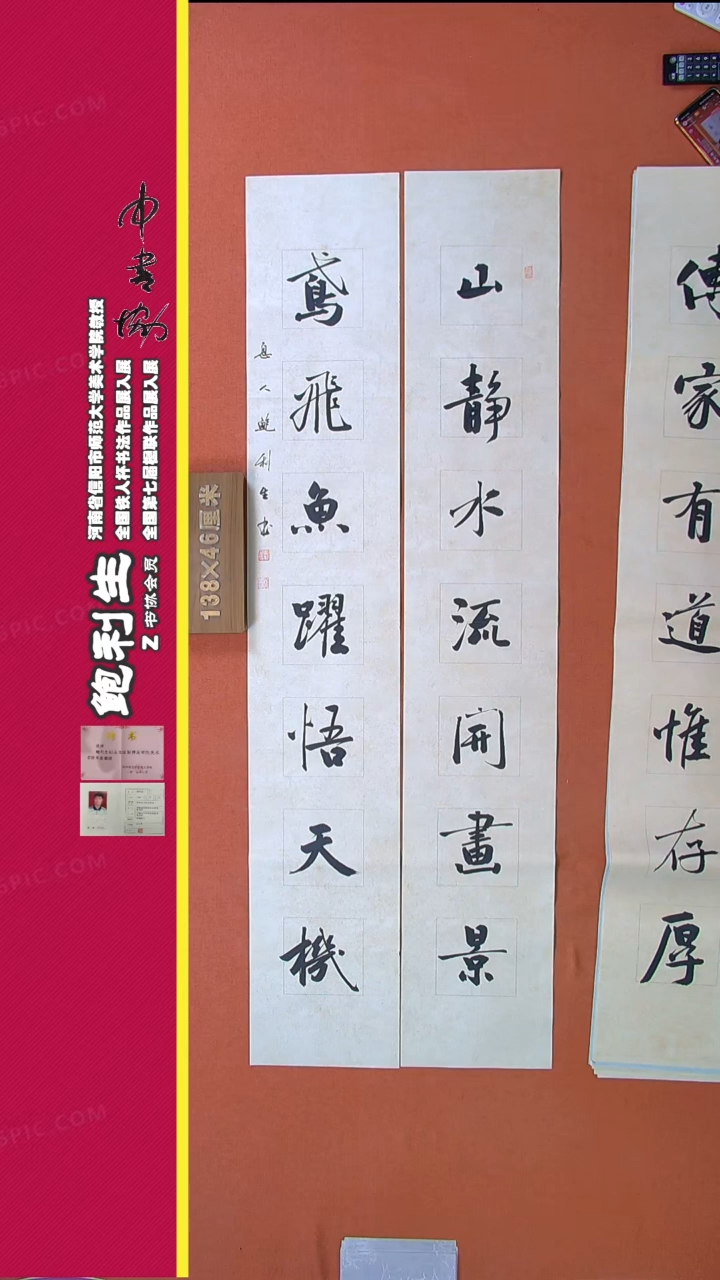 中书协
河南省信阳市师范大学美术学院教授
全国铁人杯书法作品展入展
全国第七届楹联作品展入展
鲍利生
Z 书协会员
138×46厘米
傳家有道惟存厚
山靜水流開畫景
鳶飛魚躍悟天機
息人鲍利生书